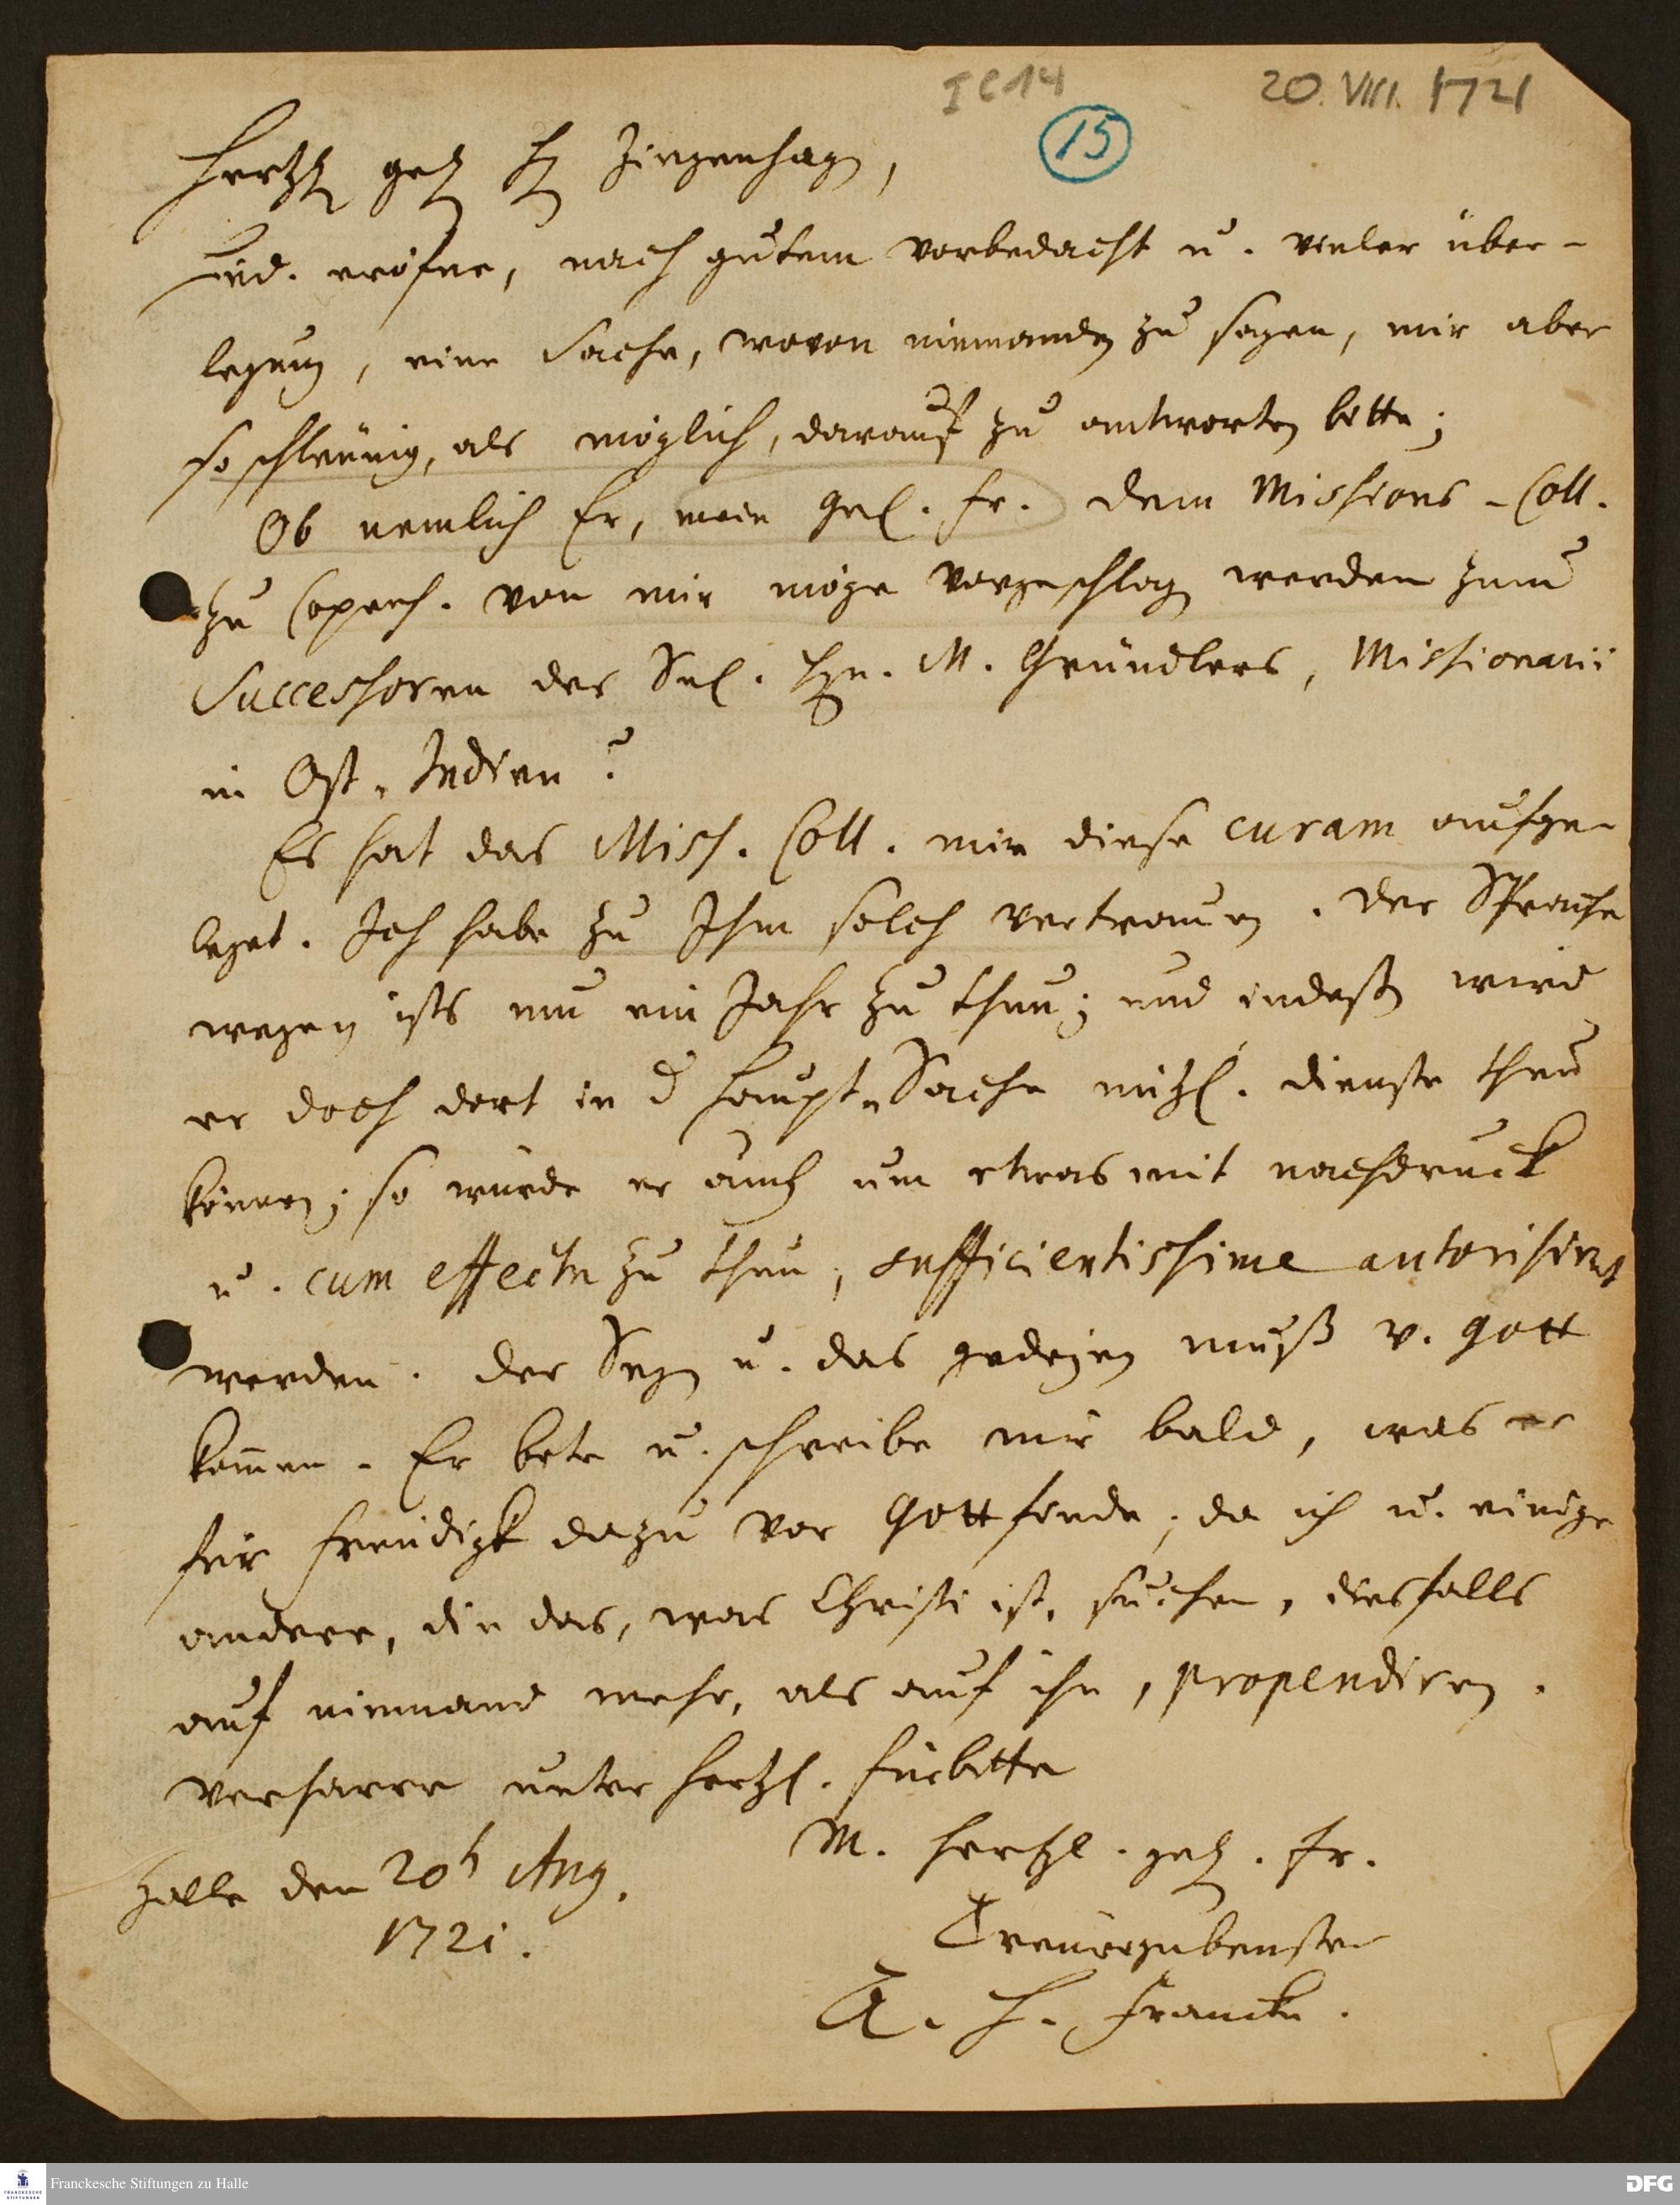 I C 14
20. VIII. 1721
15
Hertzl gel H Ziegenhagen,
Ihnd. eröfne, nach gutem vorbedacht u. vieler über-
legung, eine Sache, wovon niemanden zu sagen, mir aber
so schleunig, als möglich, darauf zu antworten bitte;
Ob nemlich Er, mein gel. Fr. dem Missions-Coll.
zu Copenh. von mir möge vorgeschlagen werden zum
Successoren des Sel. Hrn. M. Gründlers, Missionarii
in Ost-Indien?
Es hat das Miss. Coll. mir diese curam aufge-
leget. Ich habe zu Ihm solch vertrauen. Der Sprache
wegen ists nur ein Jahr zu thun; und indeßen wird
er doch dort in d Haupt-Sache nützl. dienste thun
können; so würde er auch um etwas mit nachdruck
u. cum effectu zu thun, sufficientissime autorisiret
werden. Der Segen u. das gedeyen muß v. Gott
kommen. Er bete u. schreibe mir bald, was er
für freudigk dazu vor Gott finde; da ich u. einige
andere, die das, was Christi ist, suchen, diesfalls
auf niemand mehr, als auf ihn, propendiren.
verharre unter hertzl. fürbitte
M. hertzl. gel. Fr.
Halle den 20t Aug.
1721.
Treuergebenster
A. H. Francke.
Franckesche Stiftungen zu Halle
FRANCKESCHE STIFTUNGEN
DFG